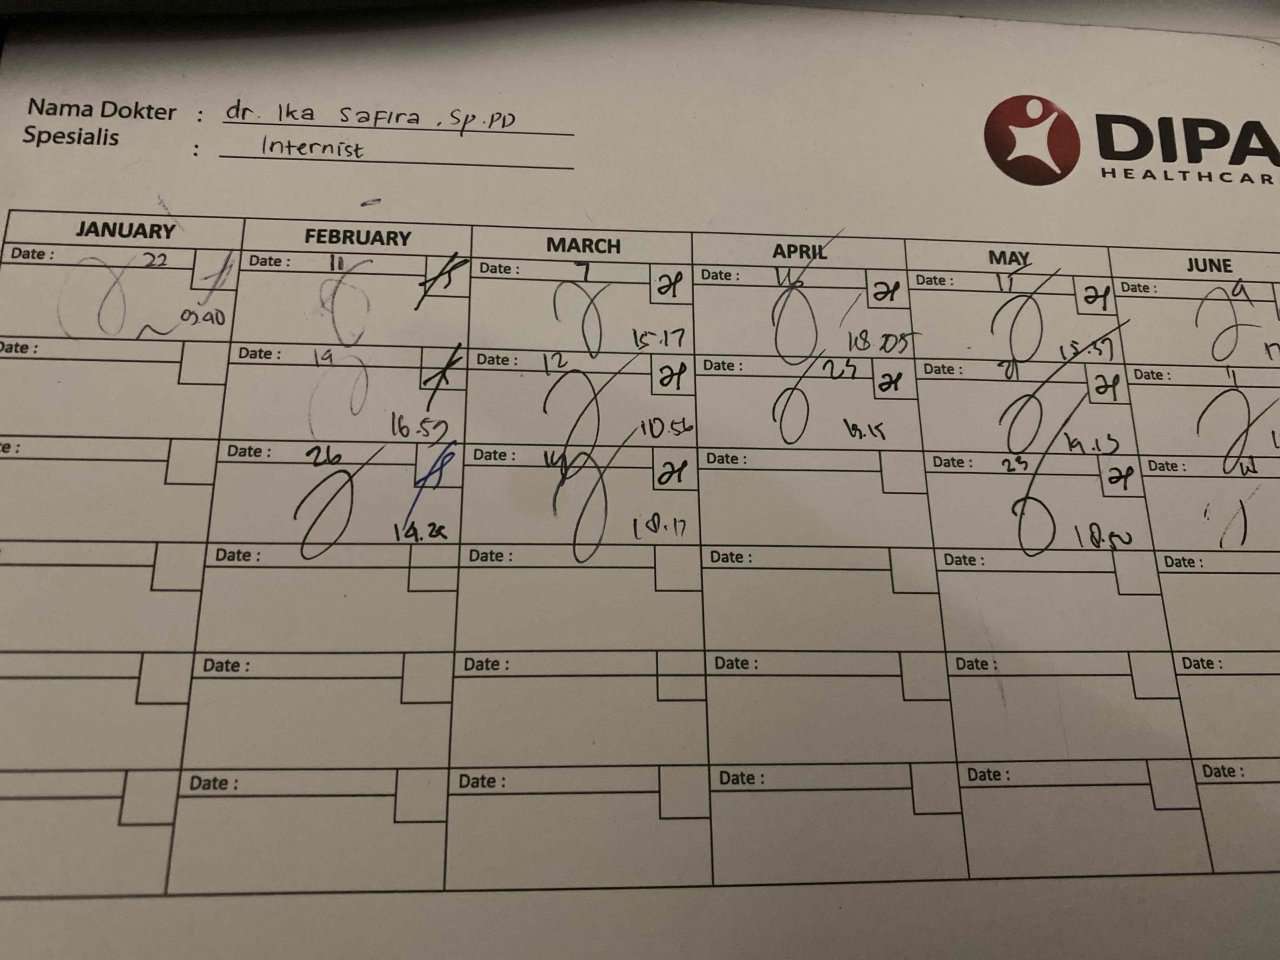 Nama Dokter : dr. Ika Safira, Sp.PD
Spesialis : Internist
DIPA
HEALTHCAR
JANUARY FEBRUARY MARCH APRIL MAY JUNE
Date : 22 Date : 11 Date : 7 Date : Date : Date : 9
09.40 15.17 18.05 15.37
Date : Date : 19 Date : 12 Date : Date : 21 Date : 11
16.57 10.56 19.15 19.13
Date : 26 Date : Date : Date : 23 Date :
18.17 18.50
Date : Date : Date : Date : Date :
Date : Date : Date : Date : Date :
Date : Date : Date : Date : Date :